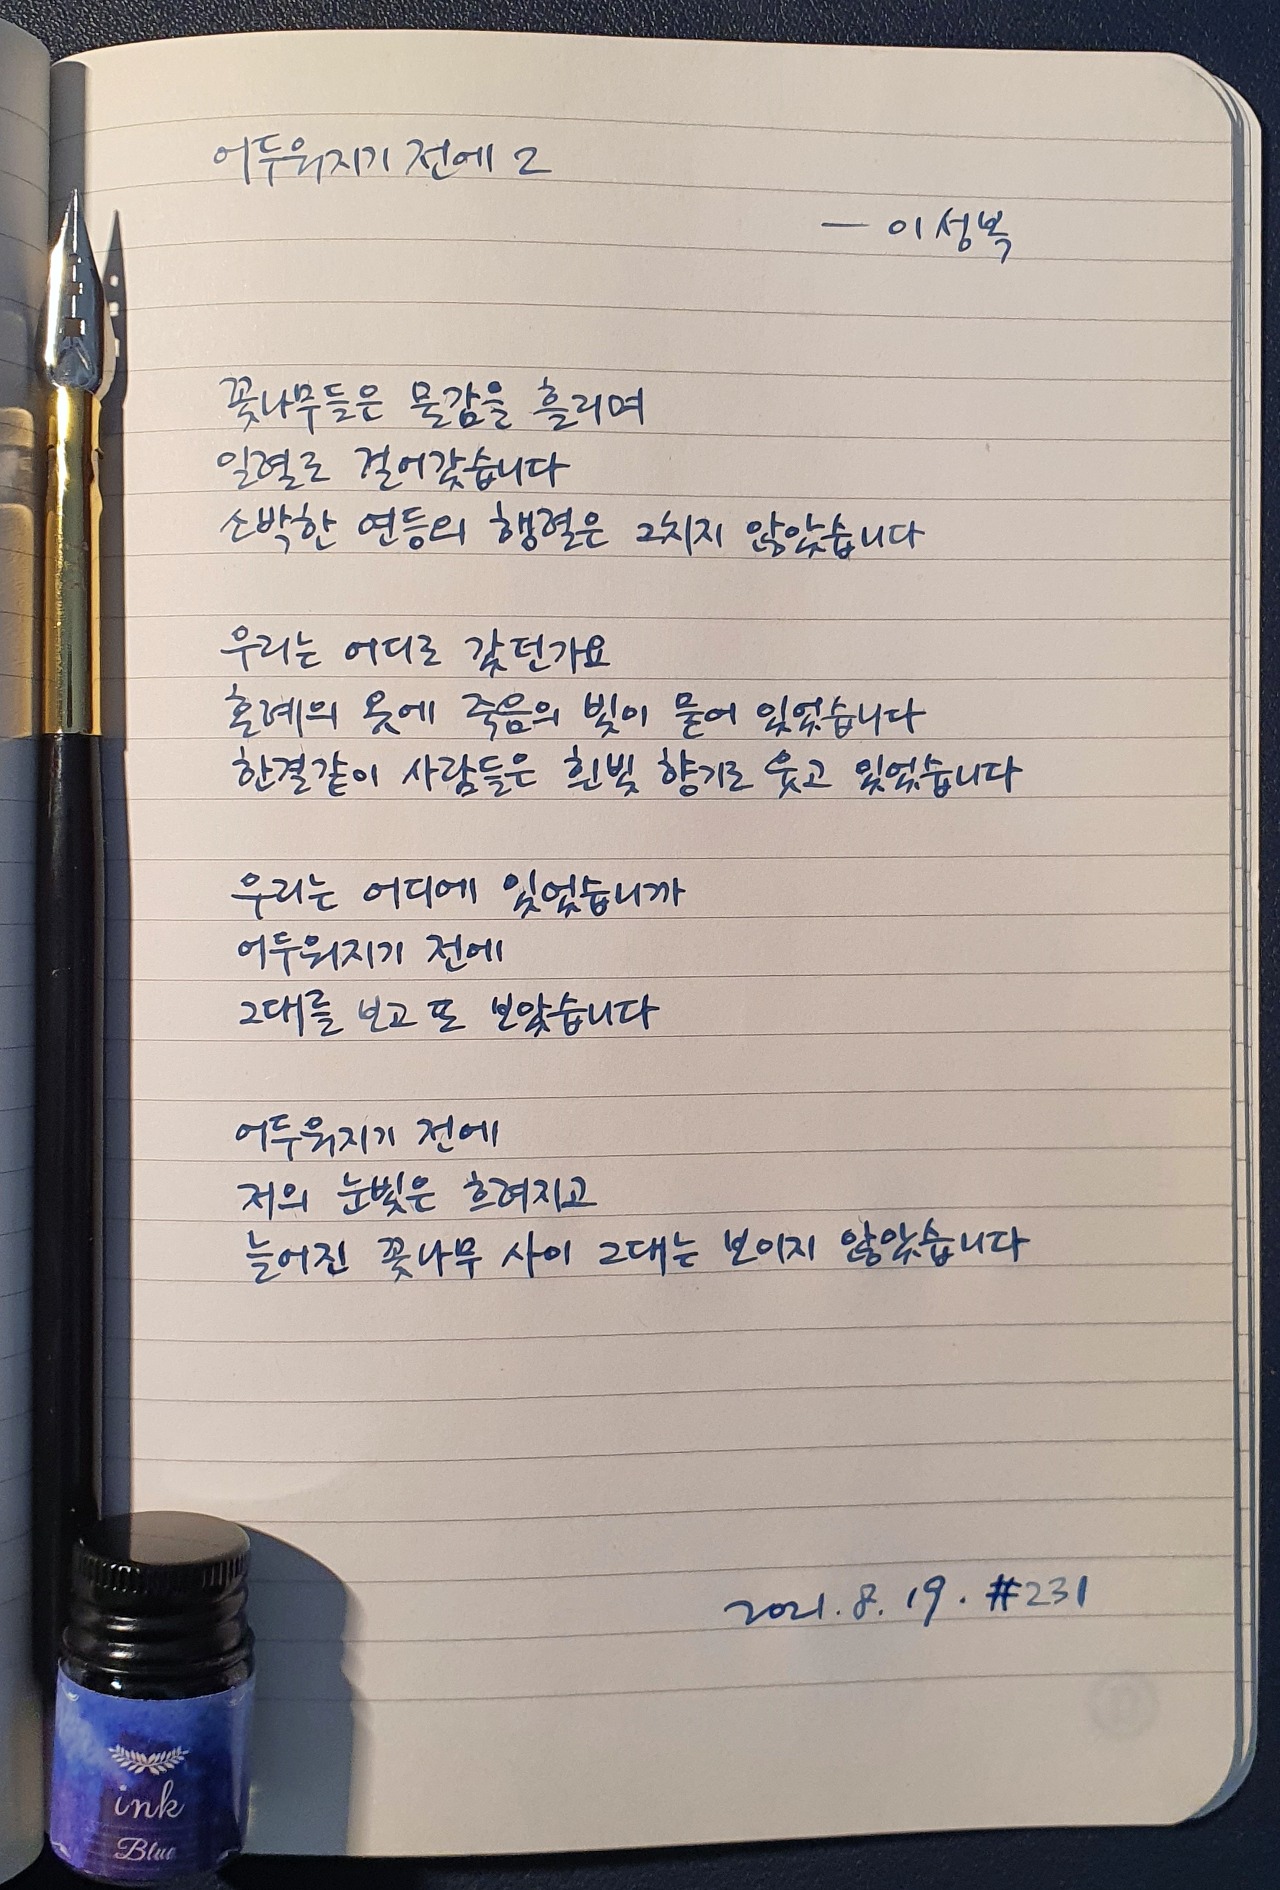 어두워지기 전에 2
— 이성복
꽃나무들은 물감을 흘리며
일렬로 걸어갔습니다
소박한 연등의 행렬은 그치지 않았습니다
우리는 어디로 갔던가요
혼례의 옷에 죽음의 빛이 묻어 있었습니다
한결같이 사람들은 흰빛 향기로 웃고 있었습니다
우리는 어디에 있었습니까
어두워지기 전에
그대를 보고 또 보았습니다
어두워지기 전에
저의 눈빛은 흐려지고
늘어진 꽃나무 사이 그대는 보이지 않았습니다
2021. 8. 19. #231
ink
Blue